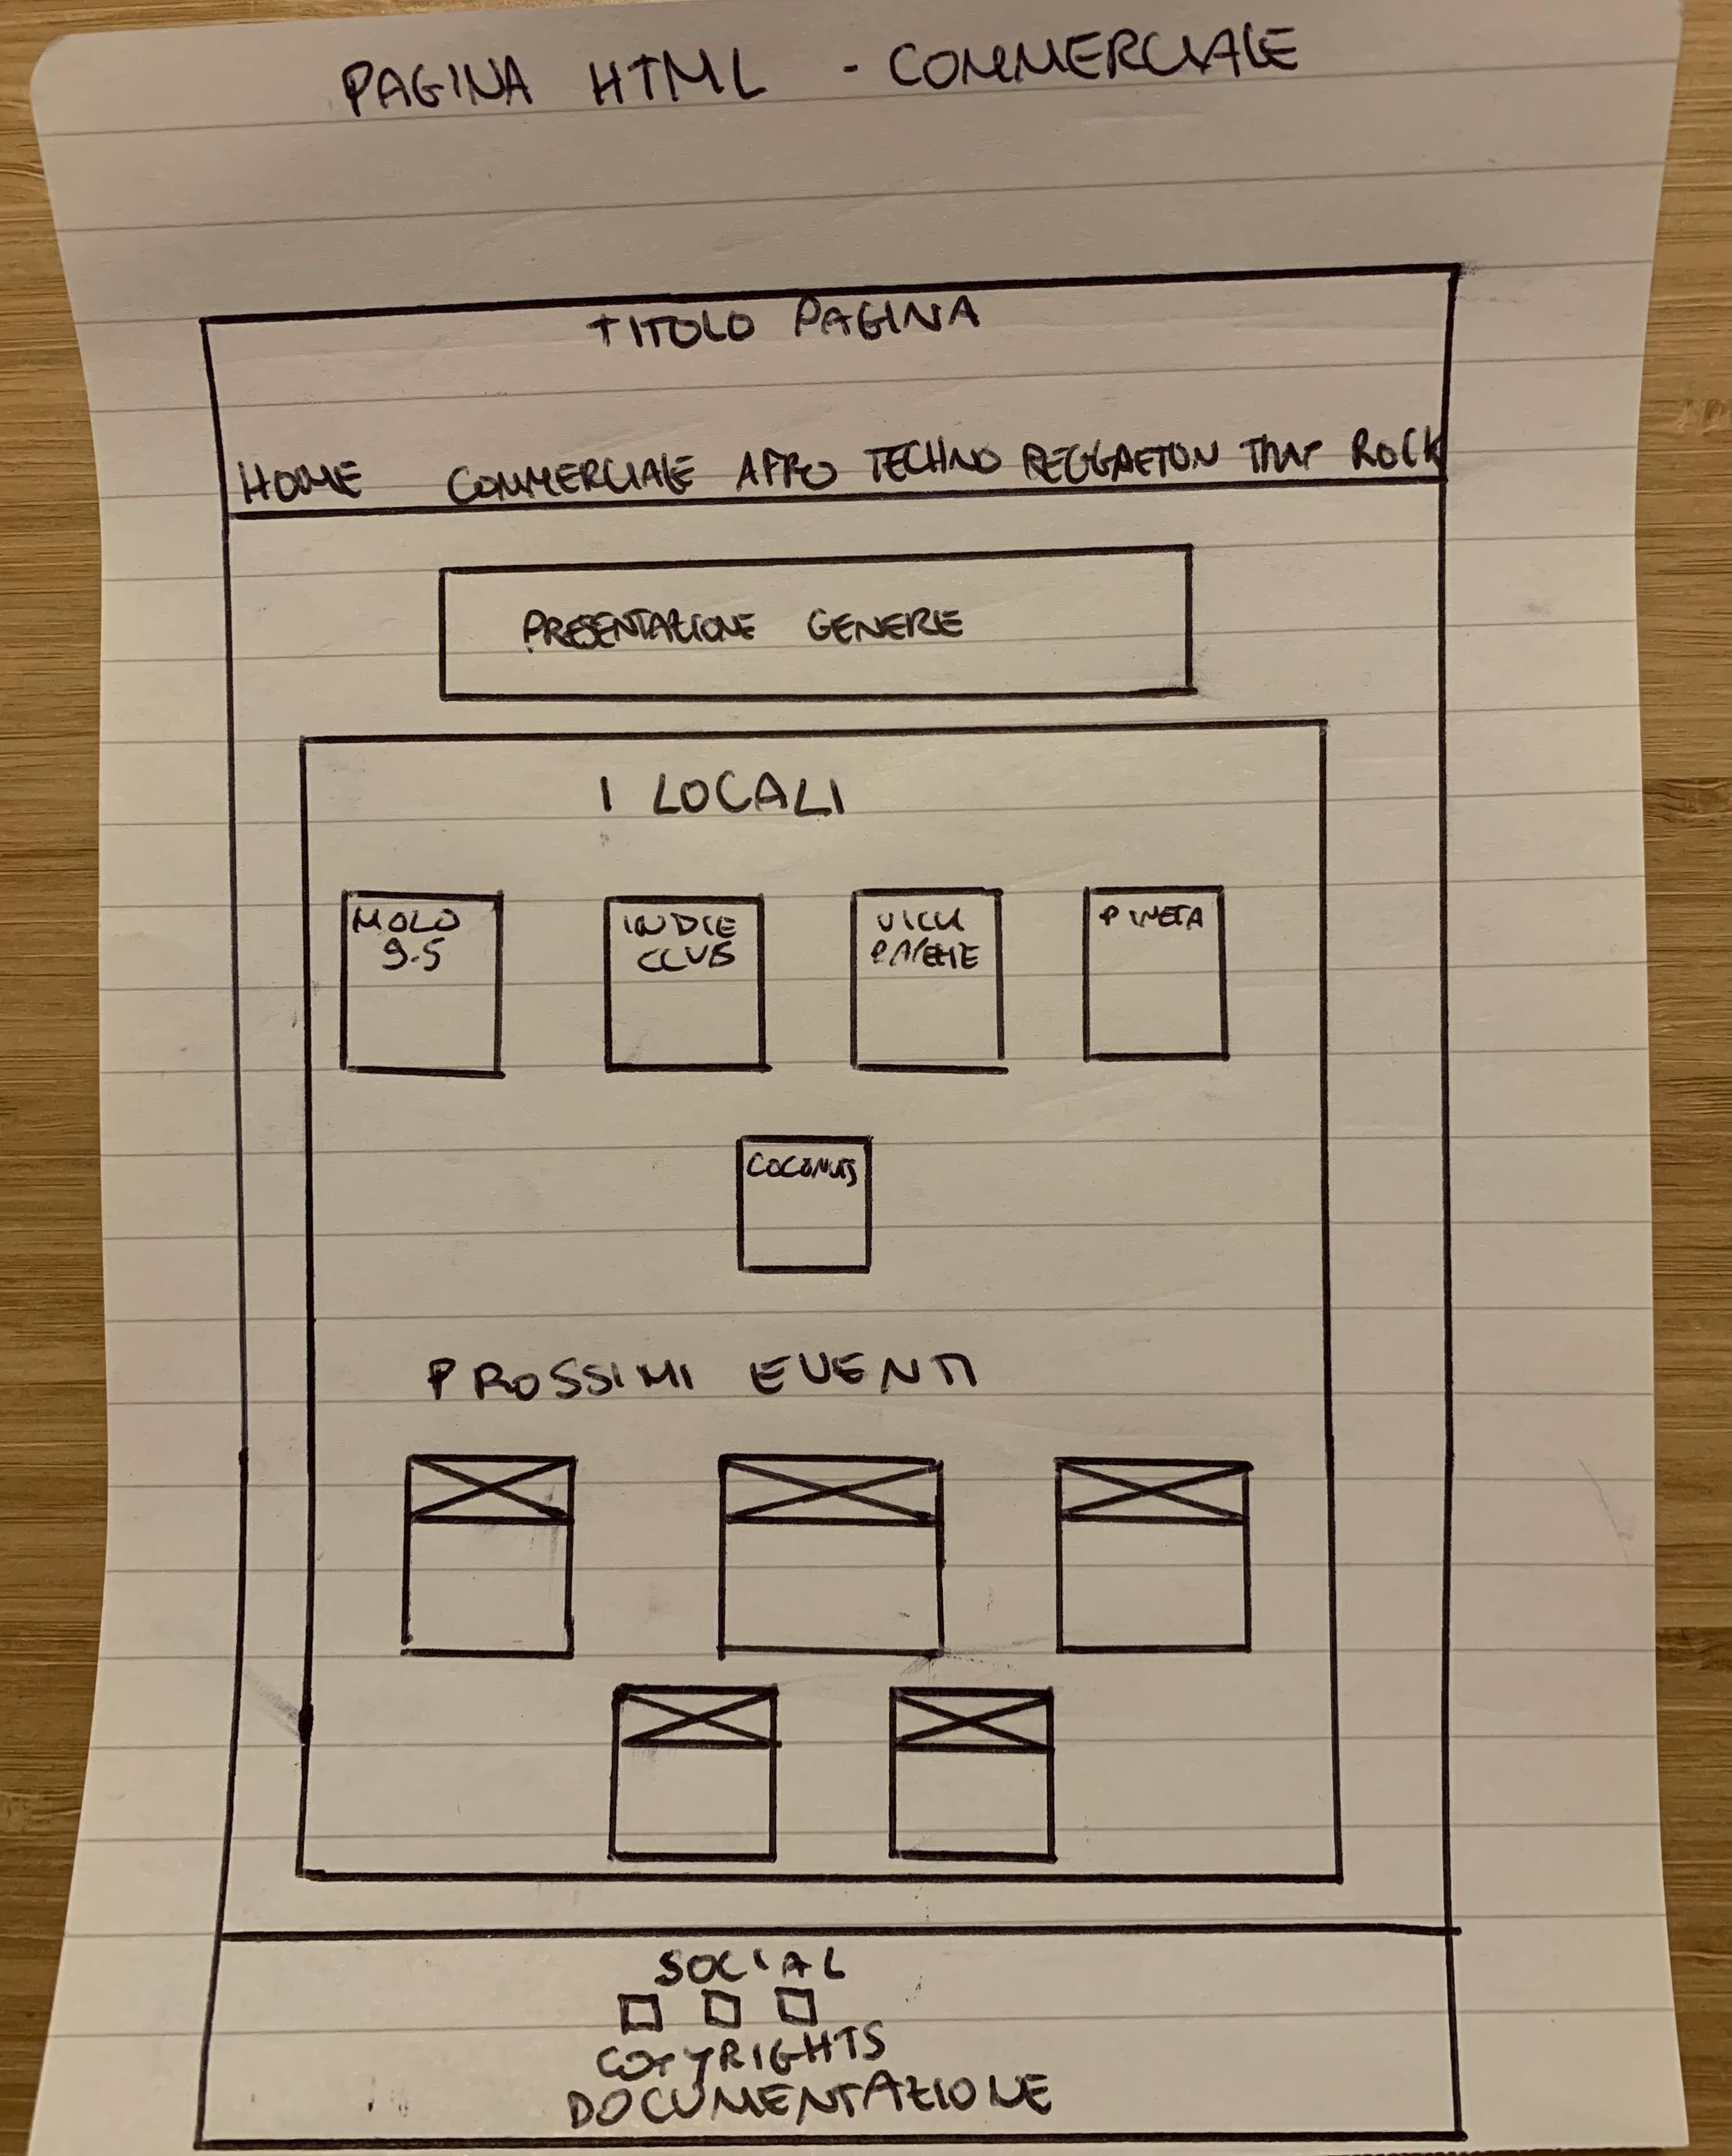 PAGINA HTML - COMMERCIALE
TITOLO PAGINA
HOME COMMERCIALE AFRO TECHNO REGGAETON TRAP ROCK
PRESENTAZIONE GENERE
I LOCALI
MOLO
9.5
INDIE
CLUB
VILLA
PAPETE
PINETA
COCONUTS
PROSSIMI EVENTI
SOCIAL
COPYRIGHTS
DOCUMENTAZIONE